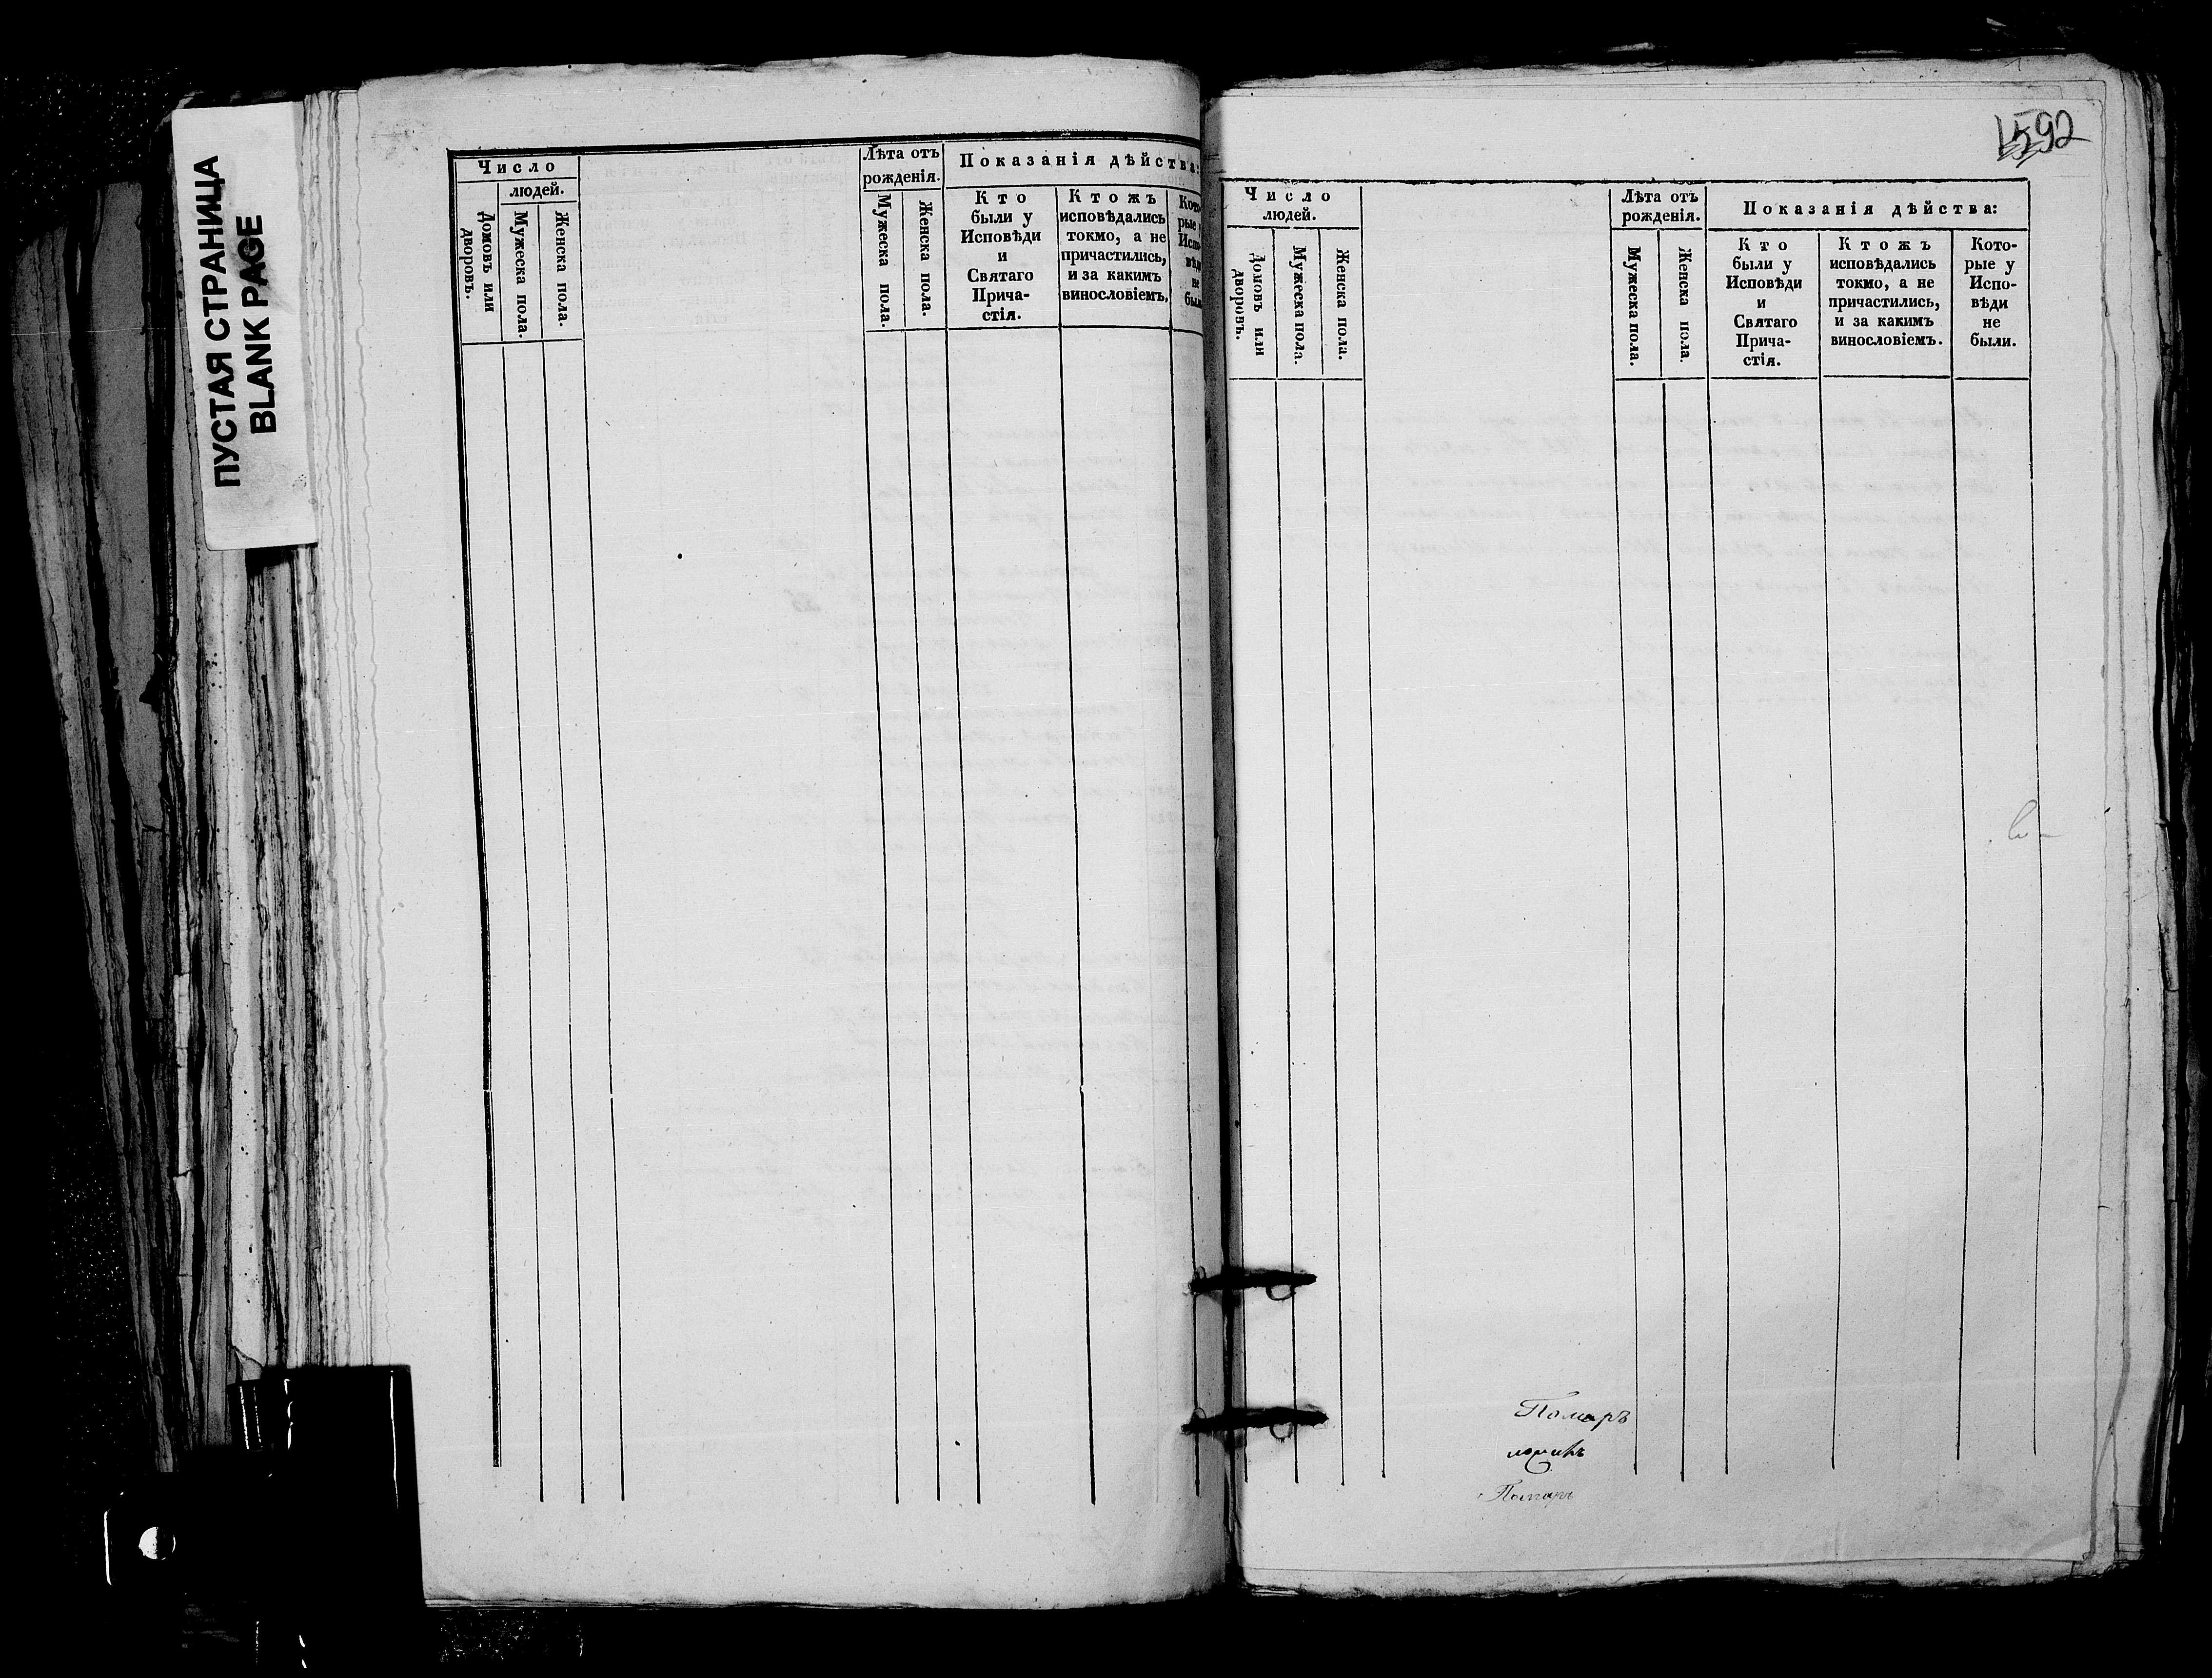 ПУСТАЯ СТРАНИЦА
BLANK PAGE
Число
людей.
Домовъ или дворовъ.
Мужеска пола.
Женска пола.
Лѣта отъ
рожденія.
Мужеска пола.
Женска пола.
Показанія дѣйства:
Кто
были у
Исповѣди
и
Святаго
Прича-
стія.
Ктожъ
исповѣдались
токмо, а не
причастились,
и за какимъ
винословіемъ.
Кото
рые
Испо
вѣд
не
был
592
Число
людей.
Домовъ или дворовъ.
Мужеска пола.
Женска пола.
Лѣта отъ
рожденія.
Мужеска пола.
Женска пола.
Показанія дѣйства:
Кто
были у
Исповѣди
и
Святаго
Прича-
стія.
Ктожъ
исповѣдались
токмо, а не
причастились,
и за какимъ
винословіемъ.
Кото-
рые у
Испо-
вѣди
не
были.